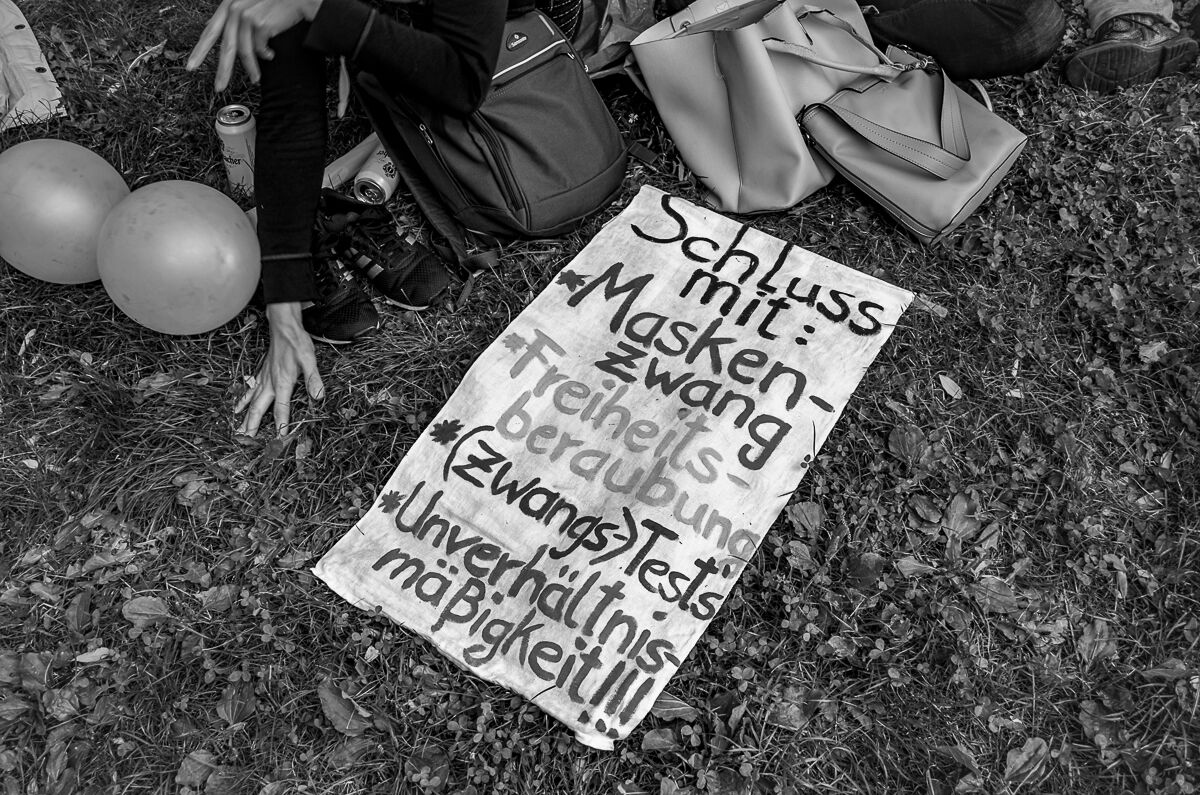 Schluss
mit:
*Masken-
zwang
*Freiheits-
beraubung
*(Zwangs-)Tests
*Unverhältnis-
mäßigkeit!!!